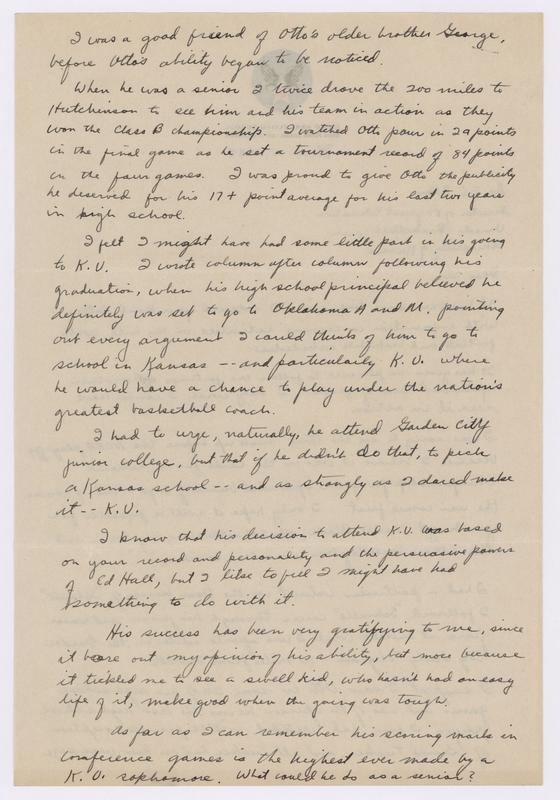 I was a good friend of Otto's older brother George,
before Otto's ability began to be noticed.
When he was a senior I twice drove the 200 miles to
Hutchinson to see him and his team in action as they
won the Class B championship. I watched Otto pour in 29 points
in the final game as he set a tournament record of 84 points
in the four games. I was proud to give Otto the publicity
he deserved for his 17+ point average for his last two years
in high school.
I felt I might have had some little part in his going
to K.U. I wrote column after column following his
graduation, when his high school principal believed he
definitely was set to go to Oklahoma A and M. pointing
out every argument I could think of him to go to
school in Kansas -- and particularly K.U. where
he would have a chance to play under the nation's
greatest basketball coach.
I had to urge, naturally, he attend Garden City
junior college, but that if he didn't do that, to pick
a Kansas school -- and as strongly as I dared make
it -- K.U.
I know that his decision to attend K.U. was based
on your record and personality and the persuasive powers
of Ed Hall, but I like to feel I might have had
something to do with it.
His success has been very gratifying to me, since
it bore out my opinion of his ability, but more because
it tickled me to see a swell kid, who hasn't had an easy
life of it, make good when the going was tough.
As far as I can remember his scoring marks in
conference games is the highest ever made by a
K.U. sophomore. What could he do as a senior?